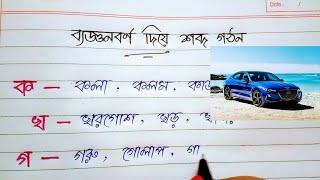 Date :
ব্যঞ্জনবর্ণ দিয়ে শব্দ গঠন
ক — কলা, কলম,
খ — খরগোশ, খড়,
গ — গরু, গোলাপ, গা